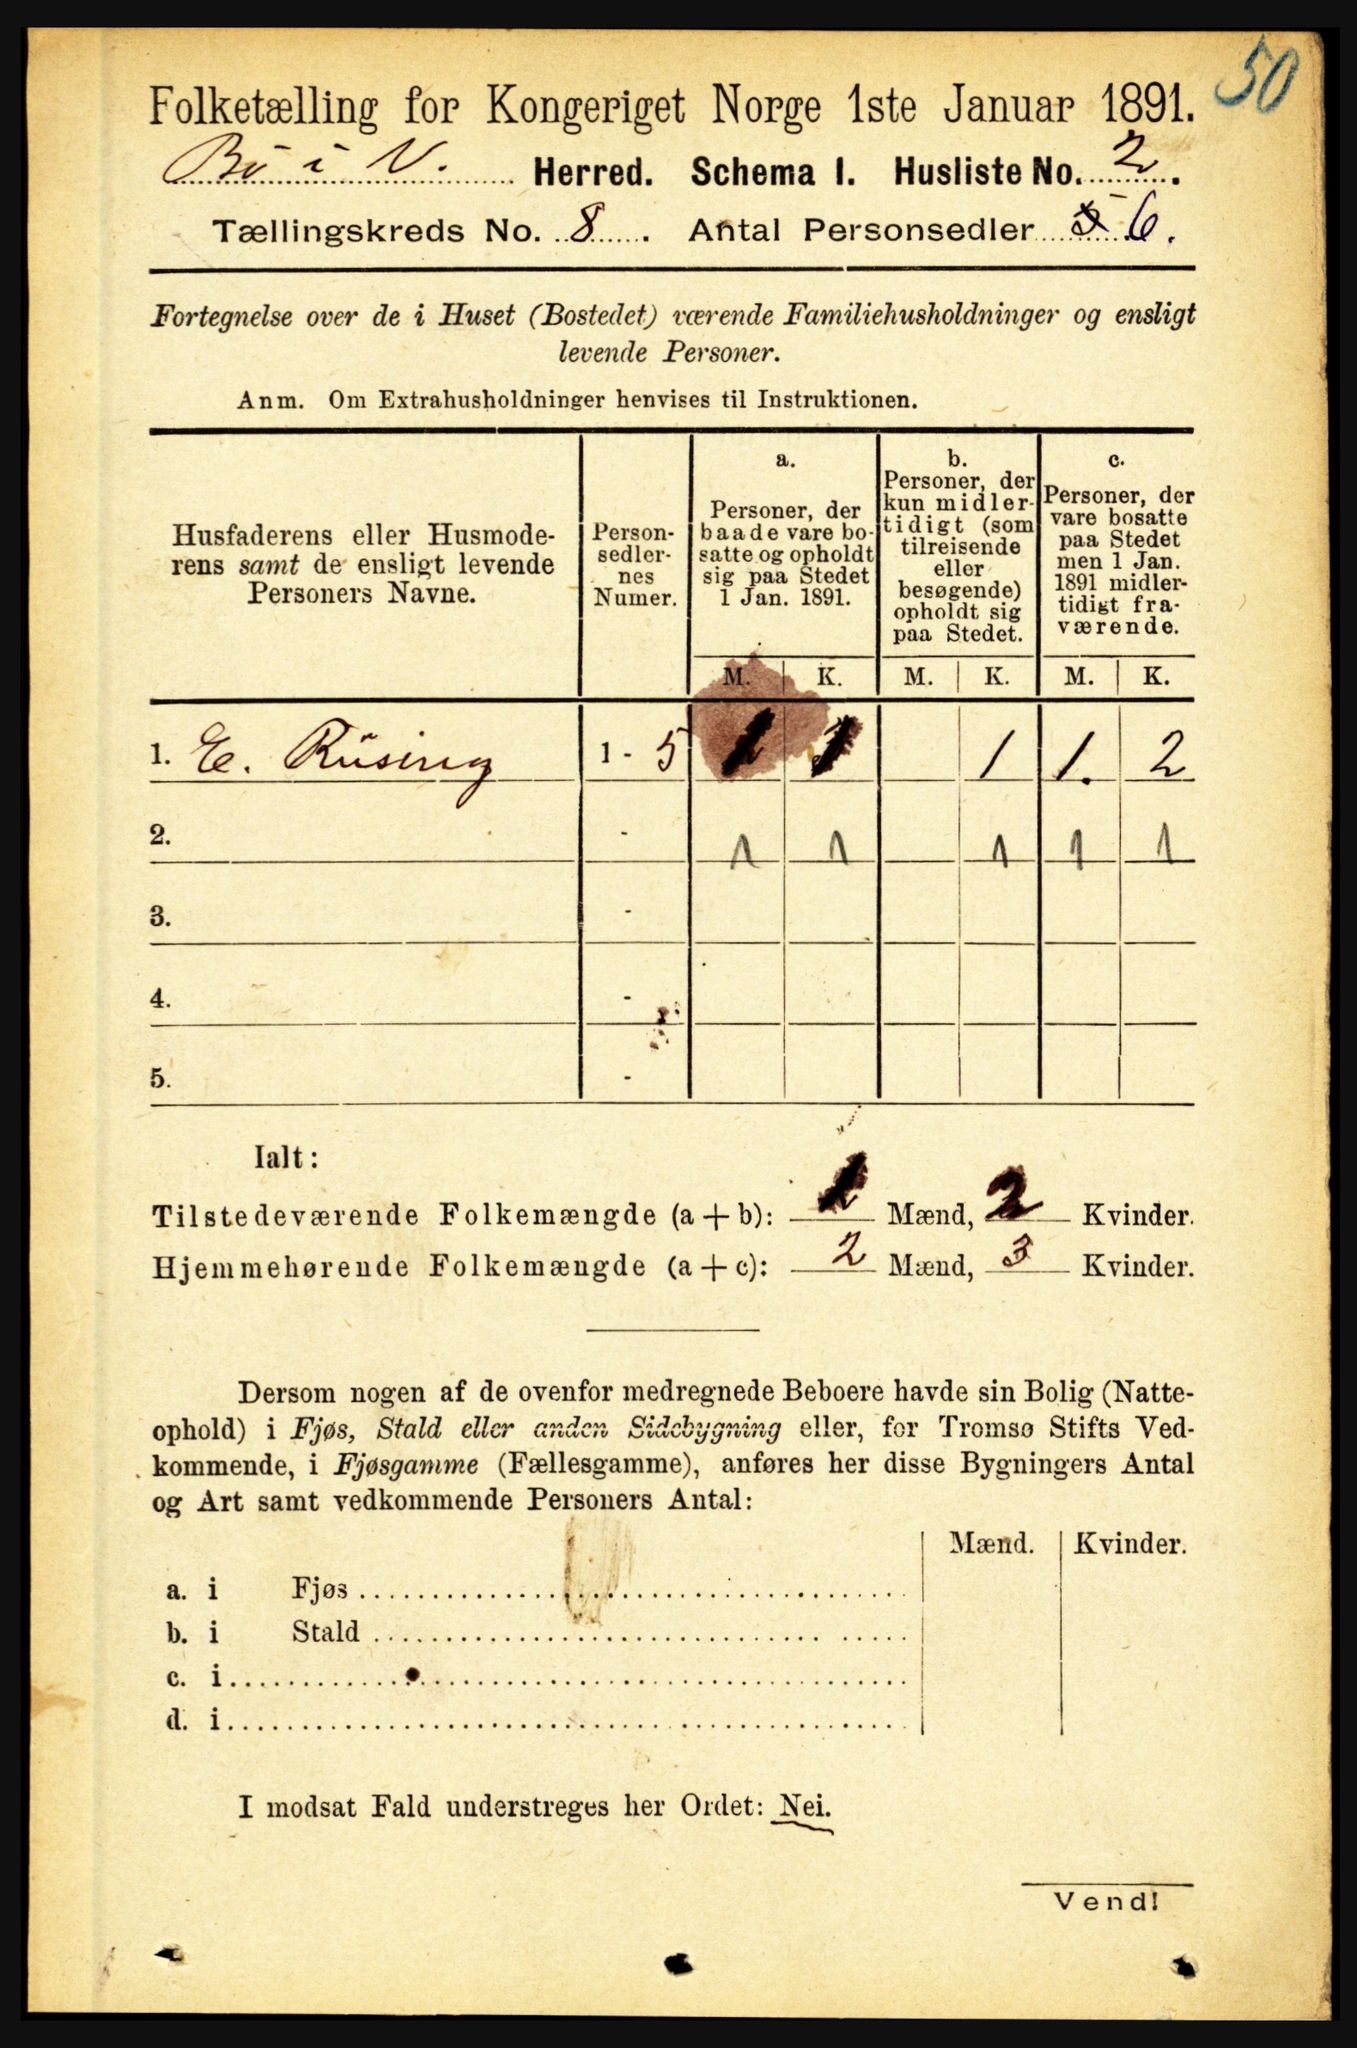 50
Folketælling for Kongeriget Norge 1ste Januar 1891.
Bö i V. Herred. Schema I. Husliste No. 2.
Tællingskreds No. 8. Antal Personsedler 5 6.
Fortegnelse over de i Huset (Bostedet) værende Familiehusholdninger og ensligt
levende Personer.
Anm. Om Extrahusholdninger henvises til Instruktionen.
Husfaderens eller Husmode-
rens samt de ensligt levende
Personers Navne.
Person-
sedler-
nes
Numer.
a.
Personer, der
baade vare bo-
satte og opholdt
sig paa Stedet
1 Jan. 1891.
b.
Personer, der
kun midler-
tidigt (som
tilreisende
eller
besøgende)
opholdt sig
paa Stedet.
c.
Personer, der
vare bosatte
paa Stedet
men 1 Jan.
1891 midler-
tidigt fra-
værende.
M. K. M. K. M. K.
1. E. Rüsing 1 - 5 1 1 1 1. 2
2. - 1 1 1 1 1
3. -
4. -
5. -
Ialt:
Tilstedeværende Folkemængde (a + b): 1 Mænd, 2 Kvinder.
Hjemmehørende Folkemængde (a + c): 2 Mænd, 3 Kvinder.
Dersom nogen af de ovenfor medregnede Beboere havde sin Bolig (Natte-
ophold) i Fjøs, Stald eller anden Sidebygning eller, for Tromsø Stifts Ved-
kommende, i Fjøsgamme (Fællesgamme), anføres her disse Bygningers Antal
og Art samt vedkommende Personers Antal:
Mænd. Kvinder.
a. i Fjøs
b. i Stald
c. i
d. i
I modsat Fald understreges her Ordet: Nei.
Vend!